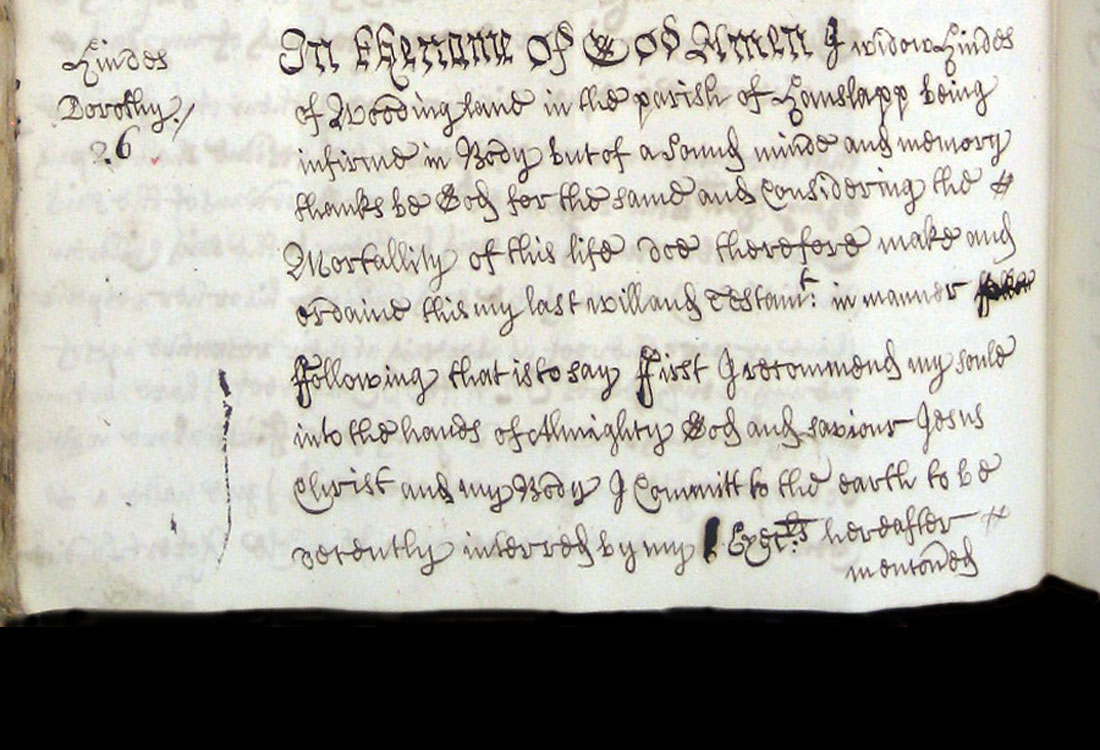 Hindes
Dorothy./
26
In the name of God Amen I widow Hindes
of Woodingland in the parish of Hanslapp being
infirme in Body but of a sound minde and memory
thanks be God for the same and Considering the #
Mortallity of this life doe therefore make and
ordaine this my last will and Testamt: in manner
following that is to say First I recommend my soule
into the hands of Allmighty God and saviour Jesus
Christ and my Body I Committ to the earth to be
decently interred by my Exectrs hereafter #
mentoned